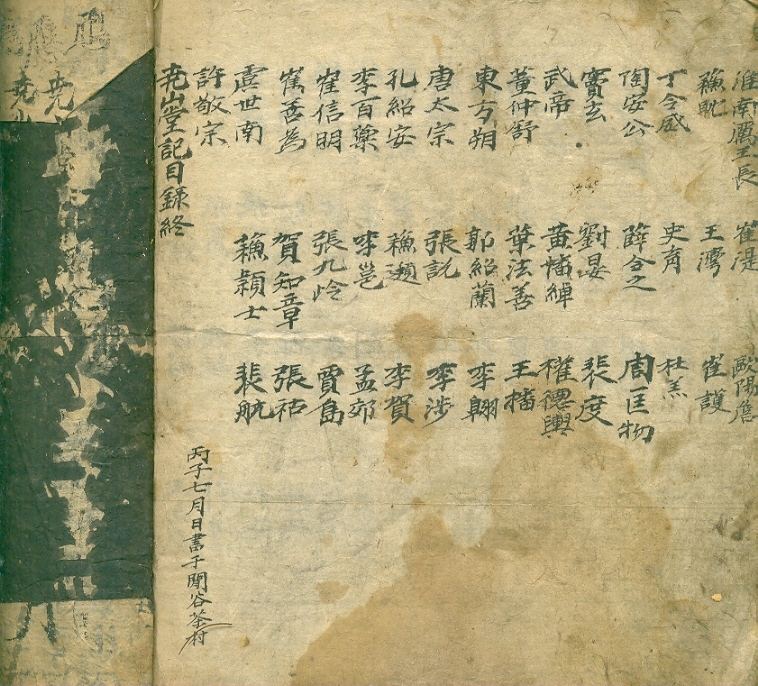 淮南厲王長 崔湜 歐陽詹
蘇耽 王灣 崔護
丁令威 史青 杜羔
陶安公 薛令之 周匡物
竇玄 劉晏 裴度
武帝 黃幡綽 權德輿
董仲舒 葉法善 王播
東方朔 郭紹蘭 李翱
唐太宗 張說 李涉
孔紹安 蘇頲 李賀
李百藥 李邕 孟郊
崔信明 張九岭 賈島
崔善為 賀知章 張祜
虞世南 蕭穎士 裴航
許敬宗
堯山堂記目錄終
丙子七月日書于聞谷茶村
堯山